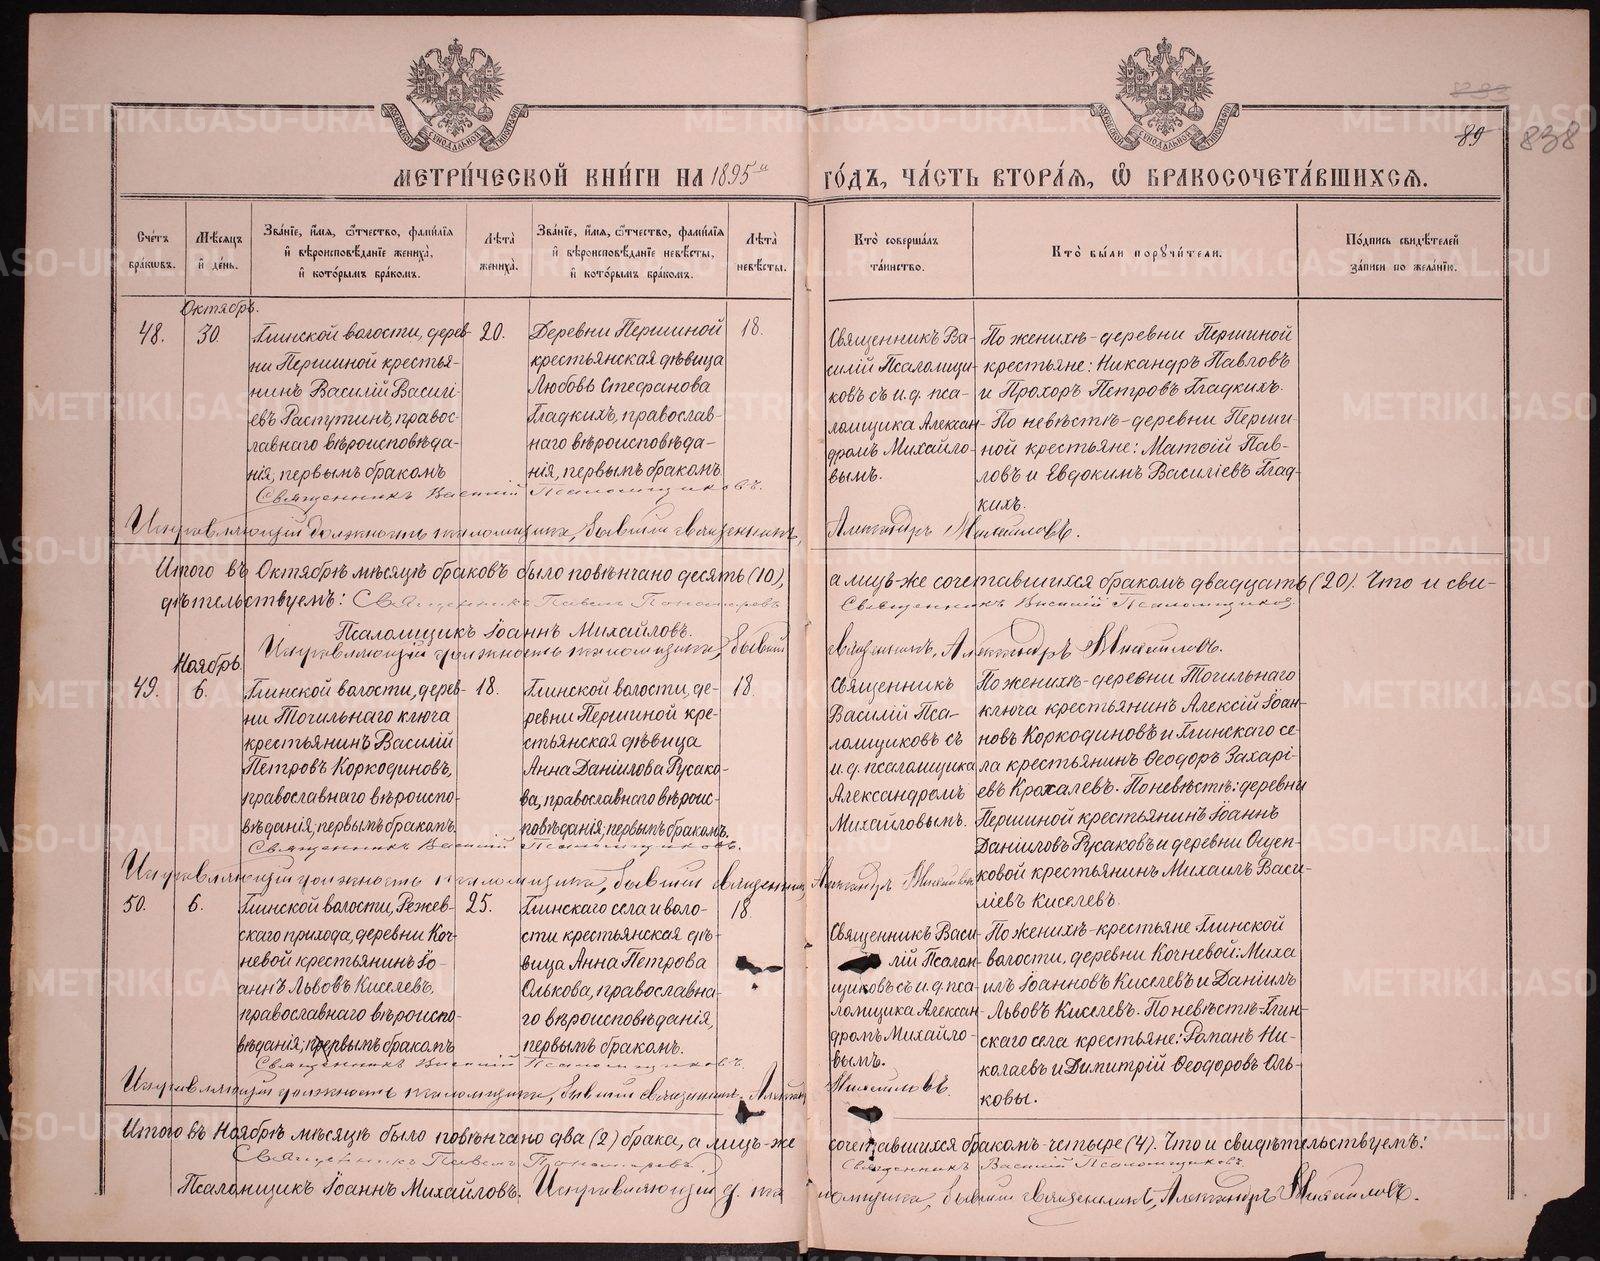 МЕТРИ́ЧЕСКОЙ КНИ́ГИ НА 1895й ГО́ДЪ, ЧА́СТЬ ВТОРА́Я, Ѿ БРАКОСОЧЕТА́ВШИХСЯ.
89
838
Сче́тъ бра́кωвъ.
Мѣ́сяцъ и҆ де́нь.
Зва́нїе, и҆́мя, ѻ҆́тчество, фами́лїя и҆ вѣроисповѣ́данїе жениха̀, и҆ кото́рымъ бра́комъ.
Лѣ́та жениха̀.
Зва́нїе, и҆́мя, ѻ҆́тчество, фами́лїя и҆ вѣроисповѣ́данїе невѣ́сты, и҆ кото́рымъ бра́комъ.
Лѣ́та невѣ́сты.
Кто̀ соверша́лъ та́инство.
Кто̀ бы́ли порꙋчи́тели.
По́дпись свидѣ́телей за́писи по жела́нїю.
Октябрь.
48.
30.
Глинской волости, дерев-
ни Першиной крестья-
нинъ Василій Василі-
евъ Распутинъ, правос-
лавнаго вѣроисповѣда-
нія, первымъ бракомъ
20.
Деревни Першиной
крестьянская дѣвица
Любовь Стефанова
Гладкихъ, православ-
наго вѣроисповѣда-
нія, первымъ бракомъ
18.
Священникъ Ва-
силій Псаломщи-
ковъ съ и.д. пса-
ломщика Алексан-
дромъ Михайло-
вымъ.
По женихѣ - деревни Першиной
крестьяне: Никандръ Павловъ
и Прохоръ Петровъ Гладкихъ.
По невѣстѣ - деревни Перши-
ной крестьяне: Матѳій Пав-
ловъ и Евдокимъ Василіевъ Глад-
кихъ.
Священникъ Василій Псаломщиковъ.
Исправляющій должность псаломщика, бывшій священникъ, Александръ Михайловъ.
Итого въ Октябрѣ мѣсяцѣ браковъ было повѣнчано десять (10), а лицъ-же сочетавшихся бракомъ двадцать (20). Что и сви-
дѣтельствуемъ: Священникъ Павелъ Пономаревъ Священникъ Василій Псаломщиковъ.
Псаломщикъ Іоаннъ Михайловъ.
Исправляющій должность псаломщика, бывшій священникъ, Александръ Михайловъ.
Ноябрь
49.
6.
Глинской волости, дерев-
ни Точильнаго ключа
крестьянинъ Василій
Петровъ Коркодиновъ,
православнаго вѣроиспо-
вѣданія, первымъ бракомъ.
18.
Глинской волости, де-
ревни Першиной кре-
стьянская дѣвица
Анна Даніилова Русако-
ва, православнаго вѣроис-
повѣданія, первымъ бракомъ.
18.
Священникъ
Василій Пса-
ломщиковъ съ
и.д. псаломщика
Александромъ
Михайловымъ.
По женихѣ - деревни Точильнаго
ключа крестьянинъ Алексій Іоан-
новъ Коркодиновъ и Глинскаго се-
ла крестьянинъ Ѳеодоръ Захарі-
евъ Крохалевъ. По невѣстѣ: деревни
Першиной крестьянинъ Іоаннъ
Даніиловъ Русаковъ и деревни Ощеп-
ковой крестьянинъ Михаилъ Васи-
ліевъ Киселевъ.
Священникъ Василій Псаломщиковъ.
Исправляющій должность псаломщика, бывшій священникъ, Александръ Михайловъ
50.
6.
Глинской волости, Режев-
скаго прихода, деревни Коч-
невой крестьянинъ Іо-
аннъ Львовъ Киселевъ,
православнаго вѣроиспо-
вѣданія, первымъ бракомъ
25.
Глинскаго села и воло-
сти крестьянская дѣ-
вица Анна Петрова
Олькова, православна-
го вѣроисповѣданія,
первымъ бракомъ.
18
Священникъ Васи-
лій Псалом-
щиковъ съ и.д. пса-
ломщика Алексан-
дромъ Михайло-
вымъ.
По женихѣ - крестьяне Глинской
волости, деревни Кочневой: Миха-
илъ Іоанновъ Киселевъ и Даніилъ
Львовъ Киселевъ. По невѣстѣ - Глин-
скаго села крестьяне: Романъ Ни-
колаевъ и Димитрій Ѳеодоровъ Оль-
ковы.
Священникъ Василій Псаломщиковъ.
Исправляющій должность псаломщика, бывшій священникъ, Михайловъ.
Итого въ Ноябрѣ мѣсяцѣ было повѣнчано два (2) брака, а лицъ-же сочетавшихся бракомъ четыре (4). Что и свидѣтельствуемъ:
Священникъ Павелъ Пономаревъ. Священникъ Василій Псаломщиковъ.
Псаломщикъ Іоаннъ Михайловъ. Исправляющій д. псаломщика, бывшій священникъ, Александръ Михайловъ.
METRIKI.GASO-URAL.RU